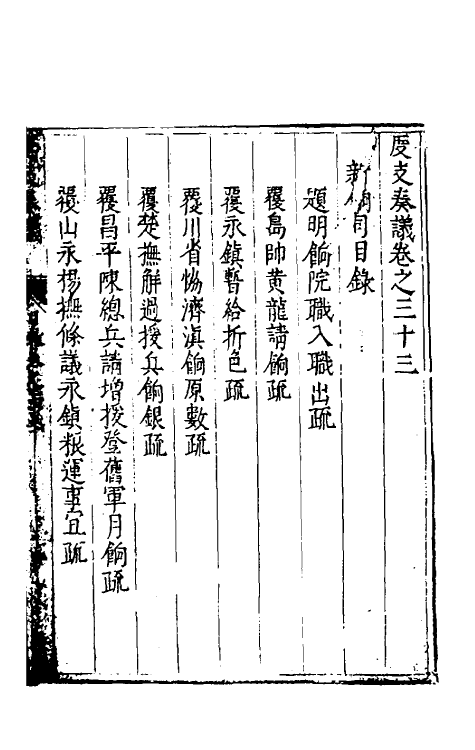 度支奏議卷之三十三
新餉司目錄
題明餉院職入職出疏
覆島帥黃龍請餉疏
覆永鎮暫給折色疏
覆川省協濟滇餉原數疏
覆楚撫解過援兵餉銀疏
覆昌平陳總兵請增援登舊軍月餉疏
覆山永楊撫條議永鎮糧運事宜疏